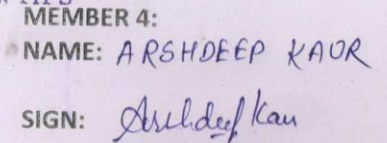 MEMBER 4:
NAME: ARSHDEEP KAUR
SIGN: Arshdeep Kaur